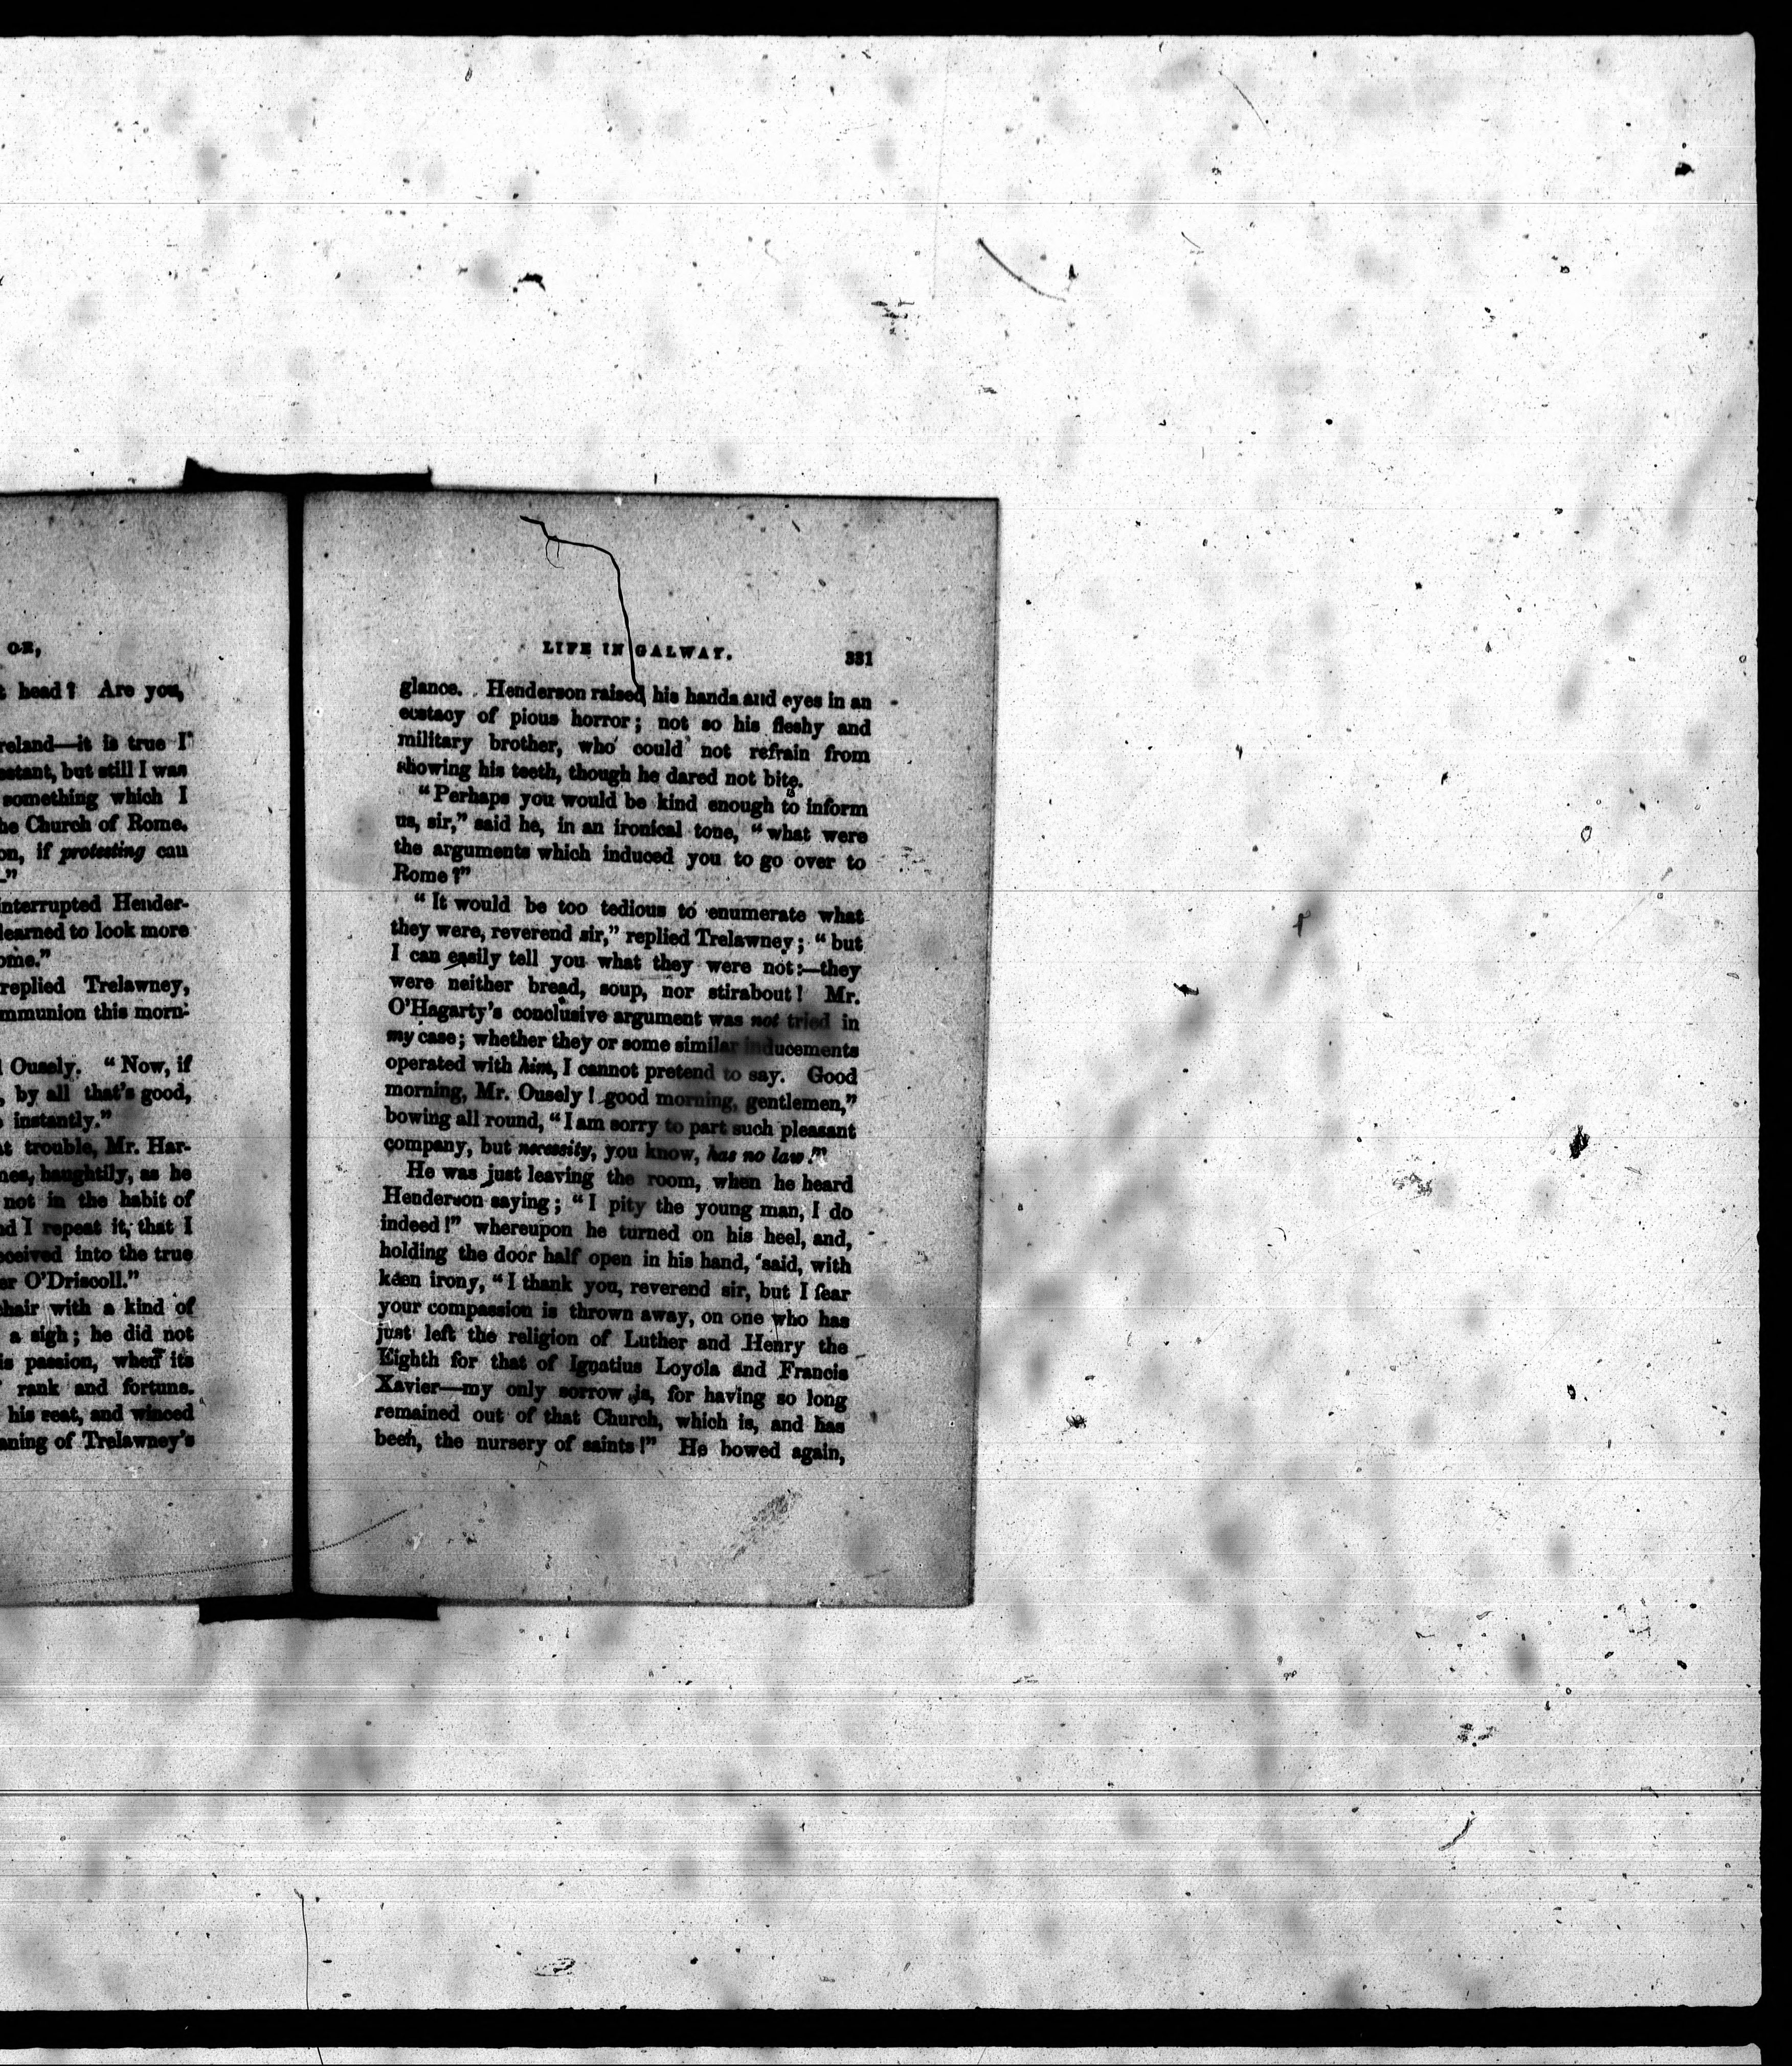 OR,
head? Are you,
reland—it is true I
estant, but still I was
something which I
he Church of Rome.
on, if protesting can
—"
interrupted Hender-
learned to look more
ome."
replied Trelawney,
mmunion this morn-
Ousely. "Now, if
, by all that's good,
instantly."
at trouble, Mr. Har-
nes, haughtily, as he
not in the habit of
nd I repeat it, that I
eceived into the true
er O'Driscoll."
chair with a kind of
a sigh; he did not
is passion, when its
rank and fortune.
his seat, and winced
aning of Trelawney's
LIFE IN GALWAY. 331
glance. Henderson raised his hands and eyes in an
ecstacy of pious horror; not so his fleshy and
military brother, who could not refrain from
showing his teeth, though he dared not bite.
"Perhaps you would be kind enough to inform
us, sir," said he, in an ironical tone, "what were
the arguments which induced you to go over to
Rome?"
"It would be too tedious to enumerate what
they were, reverend sir," replied Trelawney; "but
I can easily tell you what they were not:—they
were neither bread, soup, nor stirabout! Mr.
O'Hagarty's conclusive argument was not tried in
my case; whether they or some similar inducements
operated with him, I cannot pretend to say. Good
morning, Mr. Ousely! good morning, gentlemen,"
bowing all round, "I am sorry to part such pleasant
company, but necessity, you know, has no law!"
He was just leaving the room, when he heard
Henderson saying; "I pity the young man, I do
indeed!" whereupon he turned on his heel, and,
holding the door half open in his hand, said, with
keen irony, "I thank you, reverend sir, but I fear
your compassion is thrown away, on one who has
just left the religion of Luther and Henry the
Eighth for that of Ignatius Loyola and Francis
Xavier—my only sorrow is, for having so long
remained out of that Church, which is, and has
been, the nursery of saints!" He bowed again,